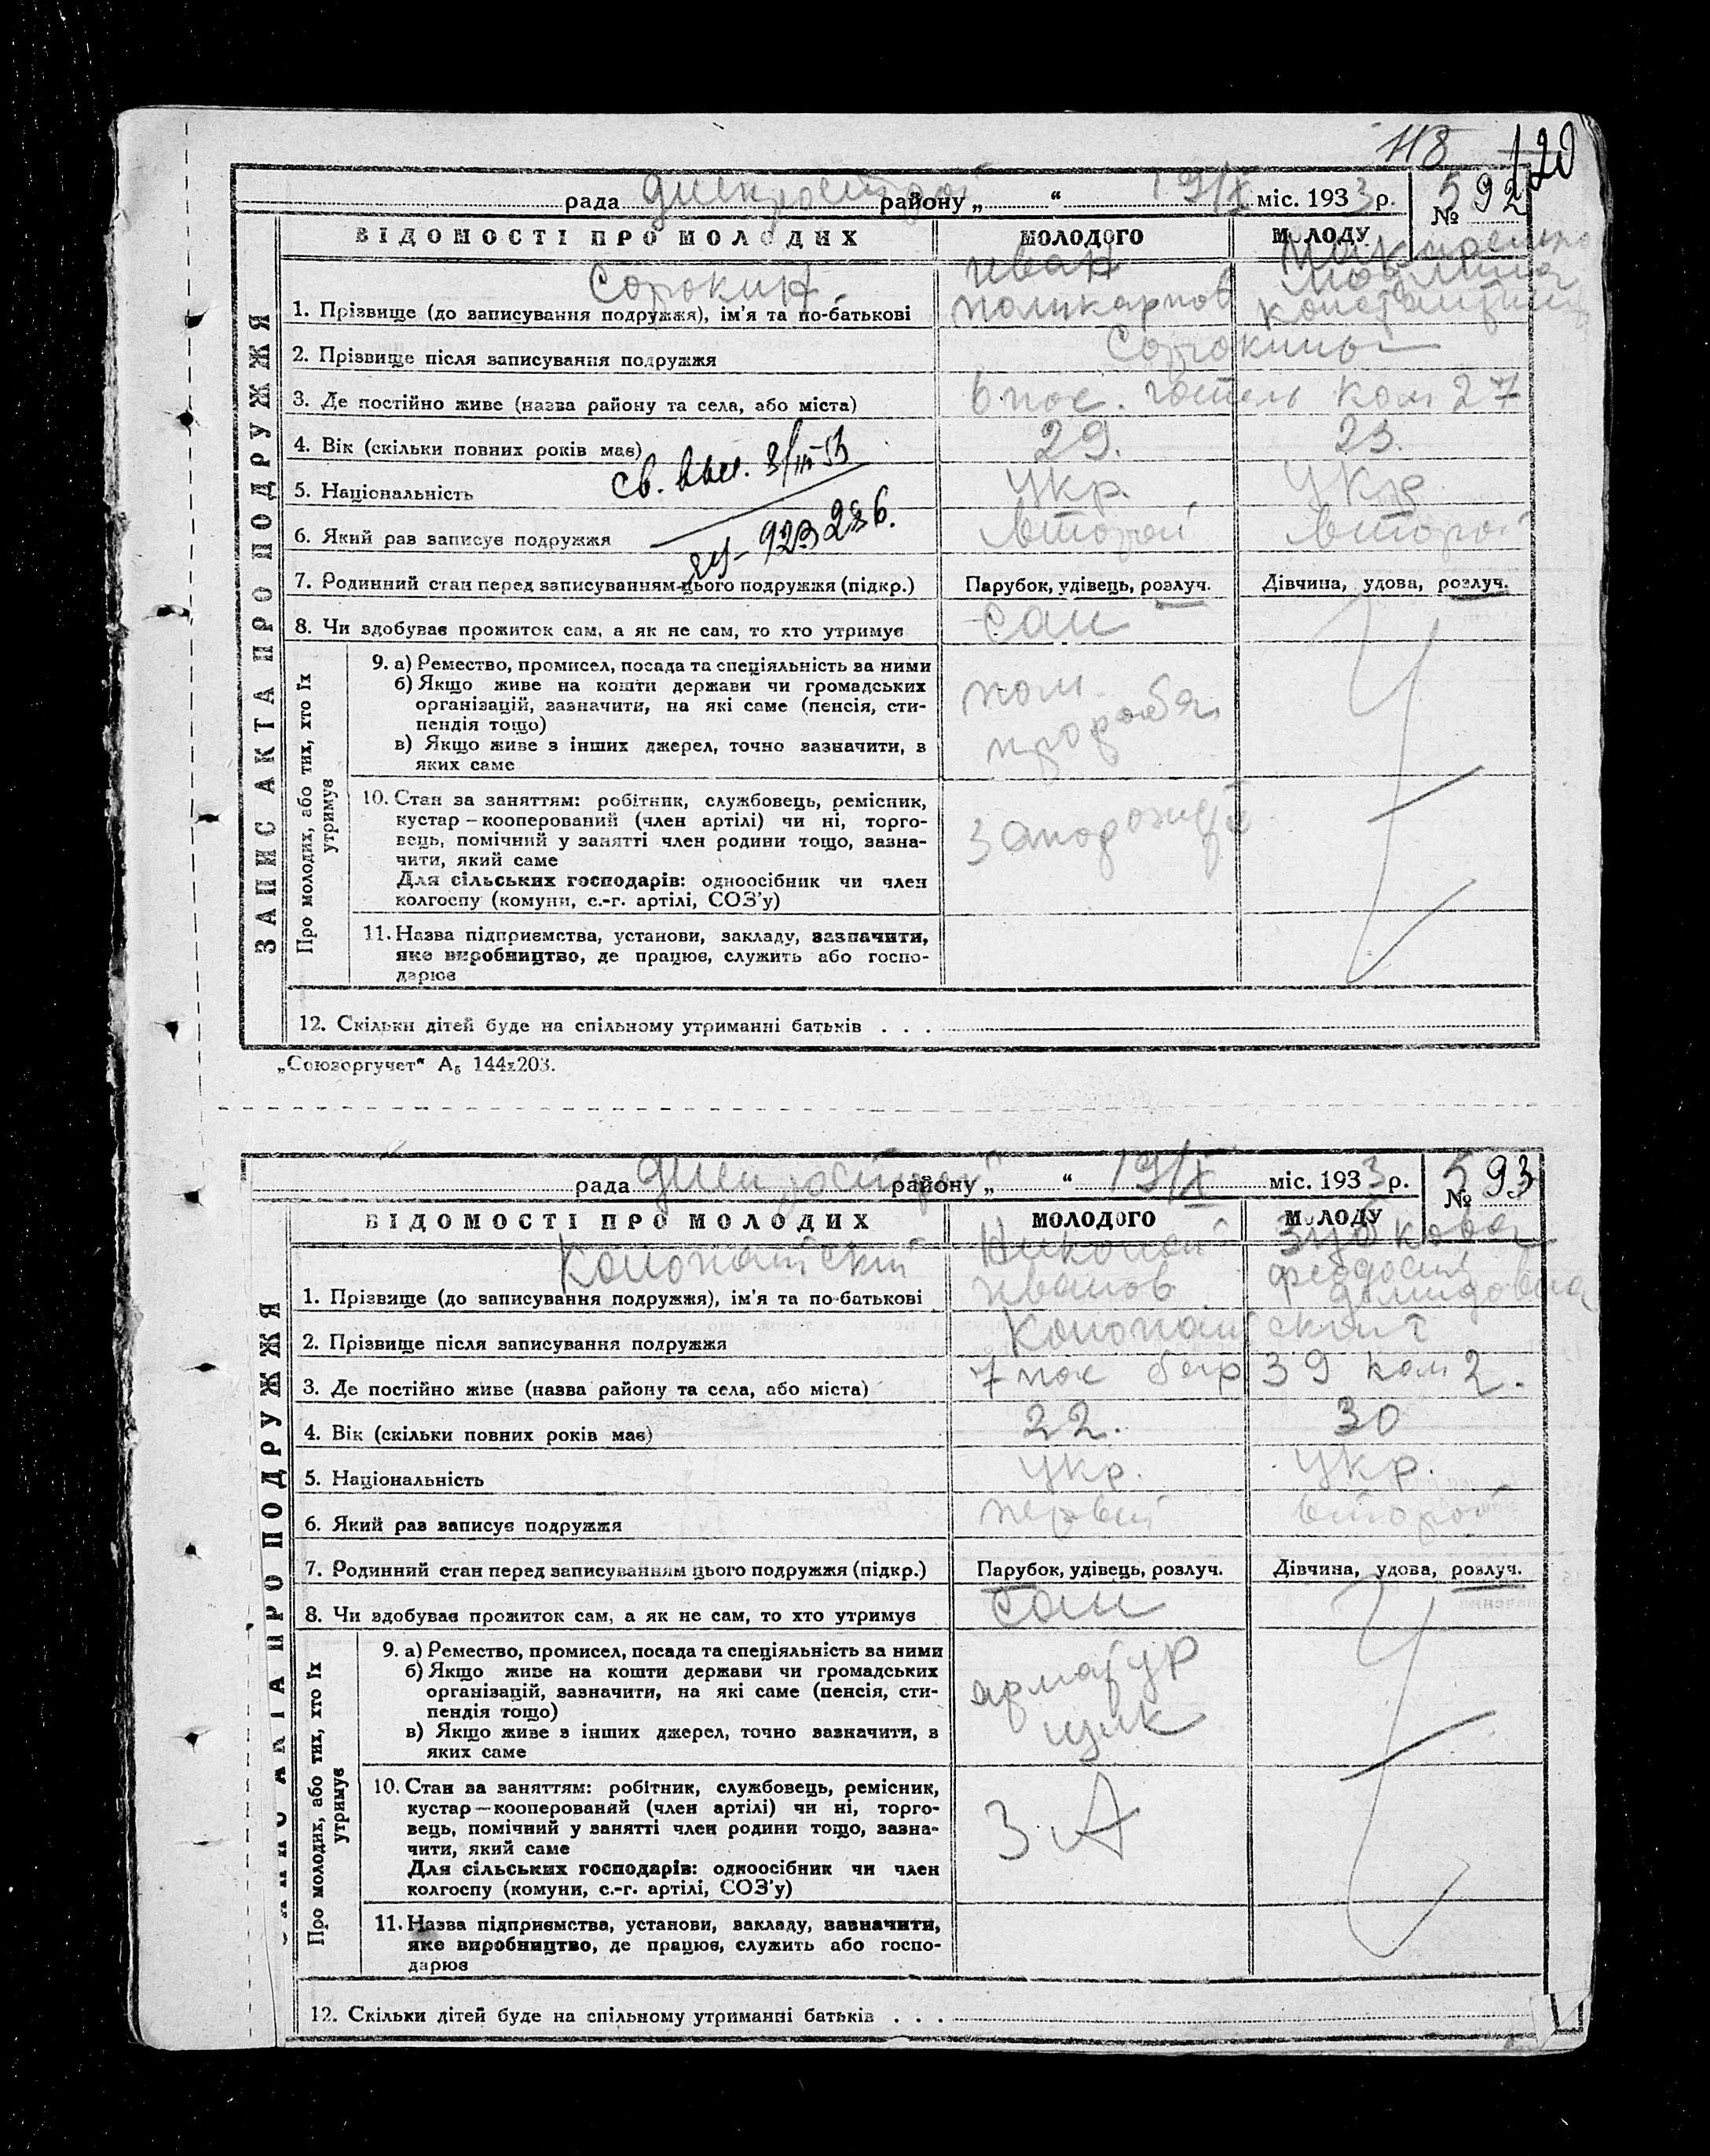 118
120
рада Днепрострой району „ “ 19/X міс. 1933 р. № 592
ВІДОМОСТІ ПРО МОЛОДИХ МОЛОДОГО МОЛОДУ
ЗАПИС АКТА ПРО ПОДРУЖЖЯ
Сорокин Иван
1. Прізвище (до записування подружжя), ім'я та по-батькові Поликарпов
2. Прізвище після записування подружжя Сорокины
3. Де постійно живе (назва району та села, або міста) 6 пос. гостель ком 27
4. Вік (скільки повних років має) 29. 23.
св. выс. 3/III-53
5. Національність укр. укр
923286.
6. Який раз записує подружжя второй второй
7. Родинний стан перед записуванням цього подружжя (підкр.) Парубок, удівець, розлуч. Дівчина, удова, розлуч.
8. Чи здобуває прожиток сам, а як не сам, то хто утримує сам
Про молодих, або тих, хто їх утримує
9. а) Ремество, промисел, посада та спеціяльність за ними
б) Якщо живе на кошти держави чи громадських пом.
організацій, зазначити, на які саме (пенсія, сти- прораба
пендія тощо)
в) Якщо живе з інших джерел, точно зазначити, з
яких саме
10. Стан за заняттям: робітник, службовець, ремісник,
кустар — кооперований (член артілі) чи ні, торго-
вець, помічний у занятті член родини тощо, зазна-
чити, який саме
Для сільських господарів: одноосібник чи член
колгоспу (комуни, с.-г. артілі, СОЗ'у)
11. Назва підприємства, установи, закладу, зазначити,
яке виробництво, де працює, служить або госпо-
дарює
12. Скільки дітей буде на спільному утриманні батьків . . .
„Союзоргучет“ А₅ 144х203.
рада Днепрострой району „ “ 19/X міс. 1933 р. № 593
ВІДОМОСТІ ПРО МОЛОДИХ МОЛОДОГО МОЛОДУ
ЗАПИС АКТА ПРО ПОДРУЖЖЯ
Николай
1. Прізвище (до записування подружжя), ім'я та по-батькові Иванов Демидовна
2. Прізвище після записування подружжя
3. Де постійно живе (назва району та села, або міста) 7 пос бар 39 ком 2.
4. Вік (скільки повних років має) 22. 30
5. Національність укр. укр.
6. Який раз записує подружжя первый второй
7. Родинний стан перед записуванням цього подружжя (підкр.) Парубок, удівець, розлуч. Дівчина, удова, розлуч.
8. Чи здобуває прожиток сам, а як не сам, то хто утримує сам
Про молодих, або тих, хто їх утримує
9. а) Ремество, промисел, посада та спеціяльність за ними
б) Якщо живе на кошти держави чи громадських арматур
організацій, зазначити, на які саме (пенсія, сти- щик
пендія тощо)
в) Якщо живе з інших джерел, точно зазначити, з
яких саме
10. Стан за заняттям: робітник, службовець, ремісник,
кустар — кооперований (член артілі) чи ні, торго- З. А
вець, помічний у занятті член родини тощо, зазна-
чити, який саме
Для сільських господарів: одноосібник чи член
колгоспу (комуни, с.-г. артілі, СОЗ'у)
11. Назва підприємства, установи, закладу, зазначити,
яке виробництво, де працює, служить або госпо-
дарює
12. Скільки дітей буде на спільному утриманні батьків . . .